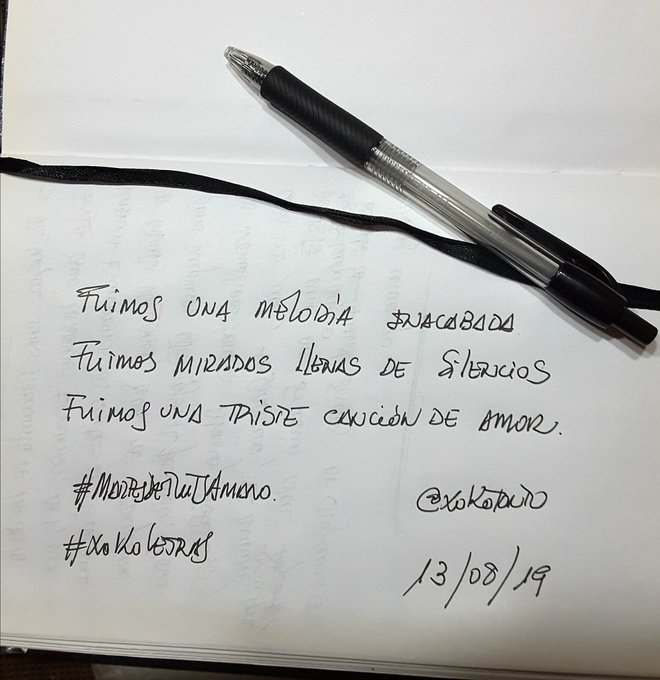 Fuimos una melodía inacabada
Fuimos miradas llenas de silencios
Fuimos una triste canción de amor.
#MartesDeTuitAMano.
@xokotauto
#xokoletras
13/08/19